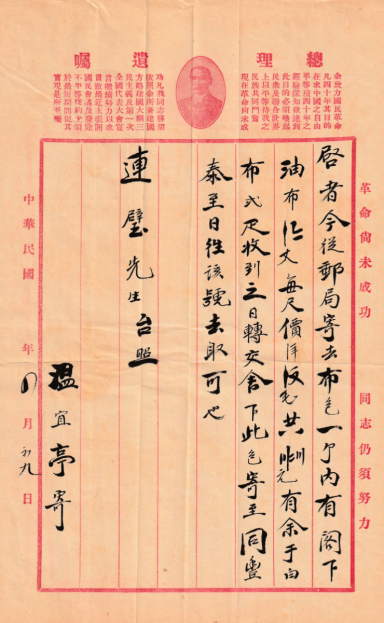 總理遺囑
余致力國民革命
凡四十年其目的
在求中國之自由
平等積四十年之
經驗深知欲達到
此目的必須喚起
民眾及聯合世界
上以平等待我之
民族共同奮鬥
現在革命尚未成
功凡我同志務須
依照余所著建國
方略建國大綱三
民主義及第一次
全國代表大會宣
言繼續努力以求
貫徹最近主張開
國民會議及廢除
不平等條約尤須
於最短期間促其
實現是所至囑
革命尚未成功 同志仍須努力
啓者今從郵局寄去布包一个內有閣下
油布丈每尺價洋毛共元有余于白
布弍尺收到之日轉交舍下此包寄至同豐
泰至日往該號去取可也
連璧先生台照
溫宜亭寄
中華民國 年 四月初九日